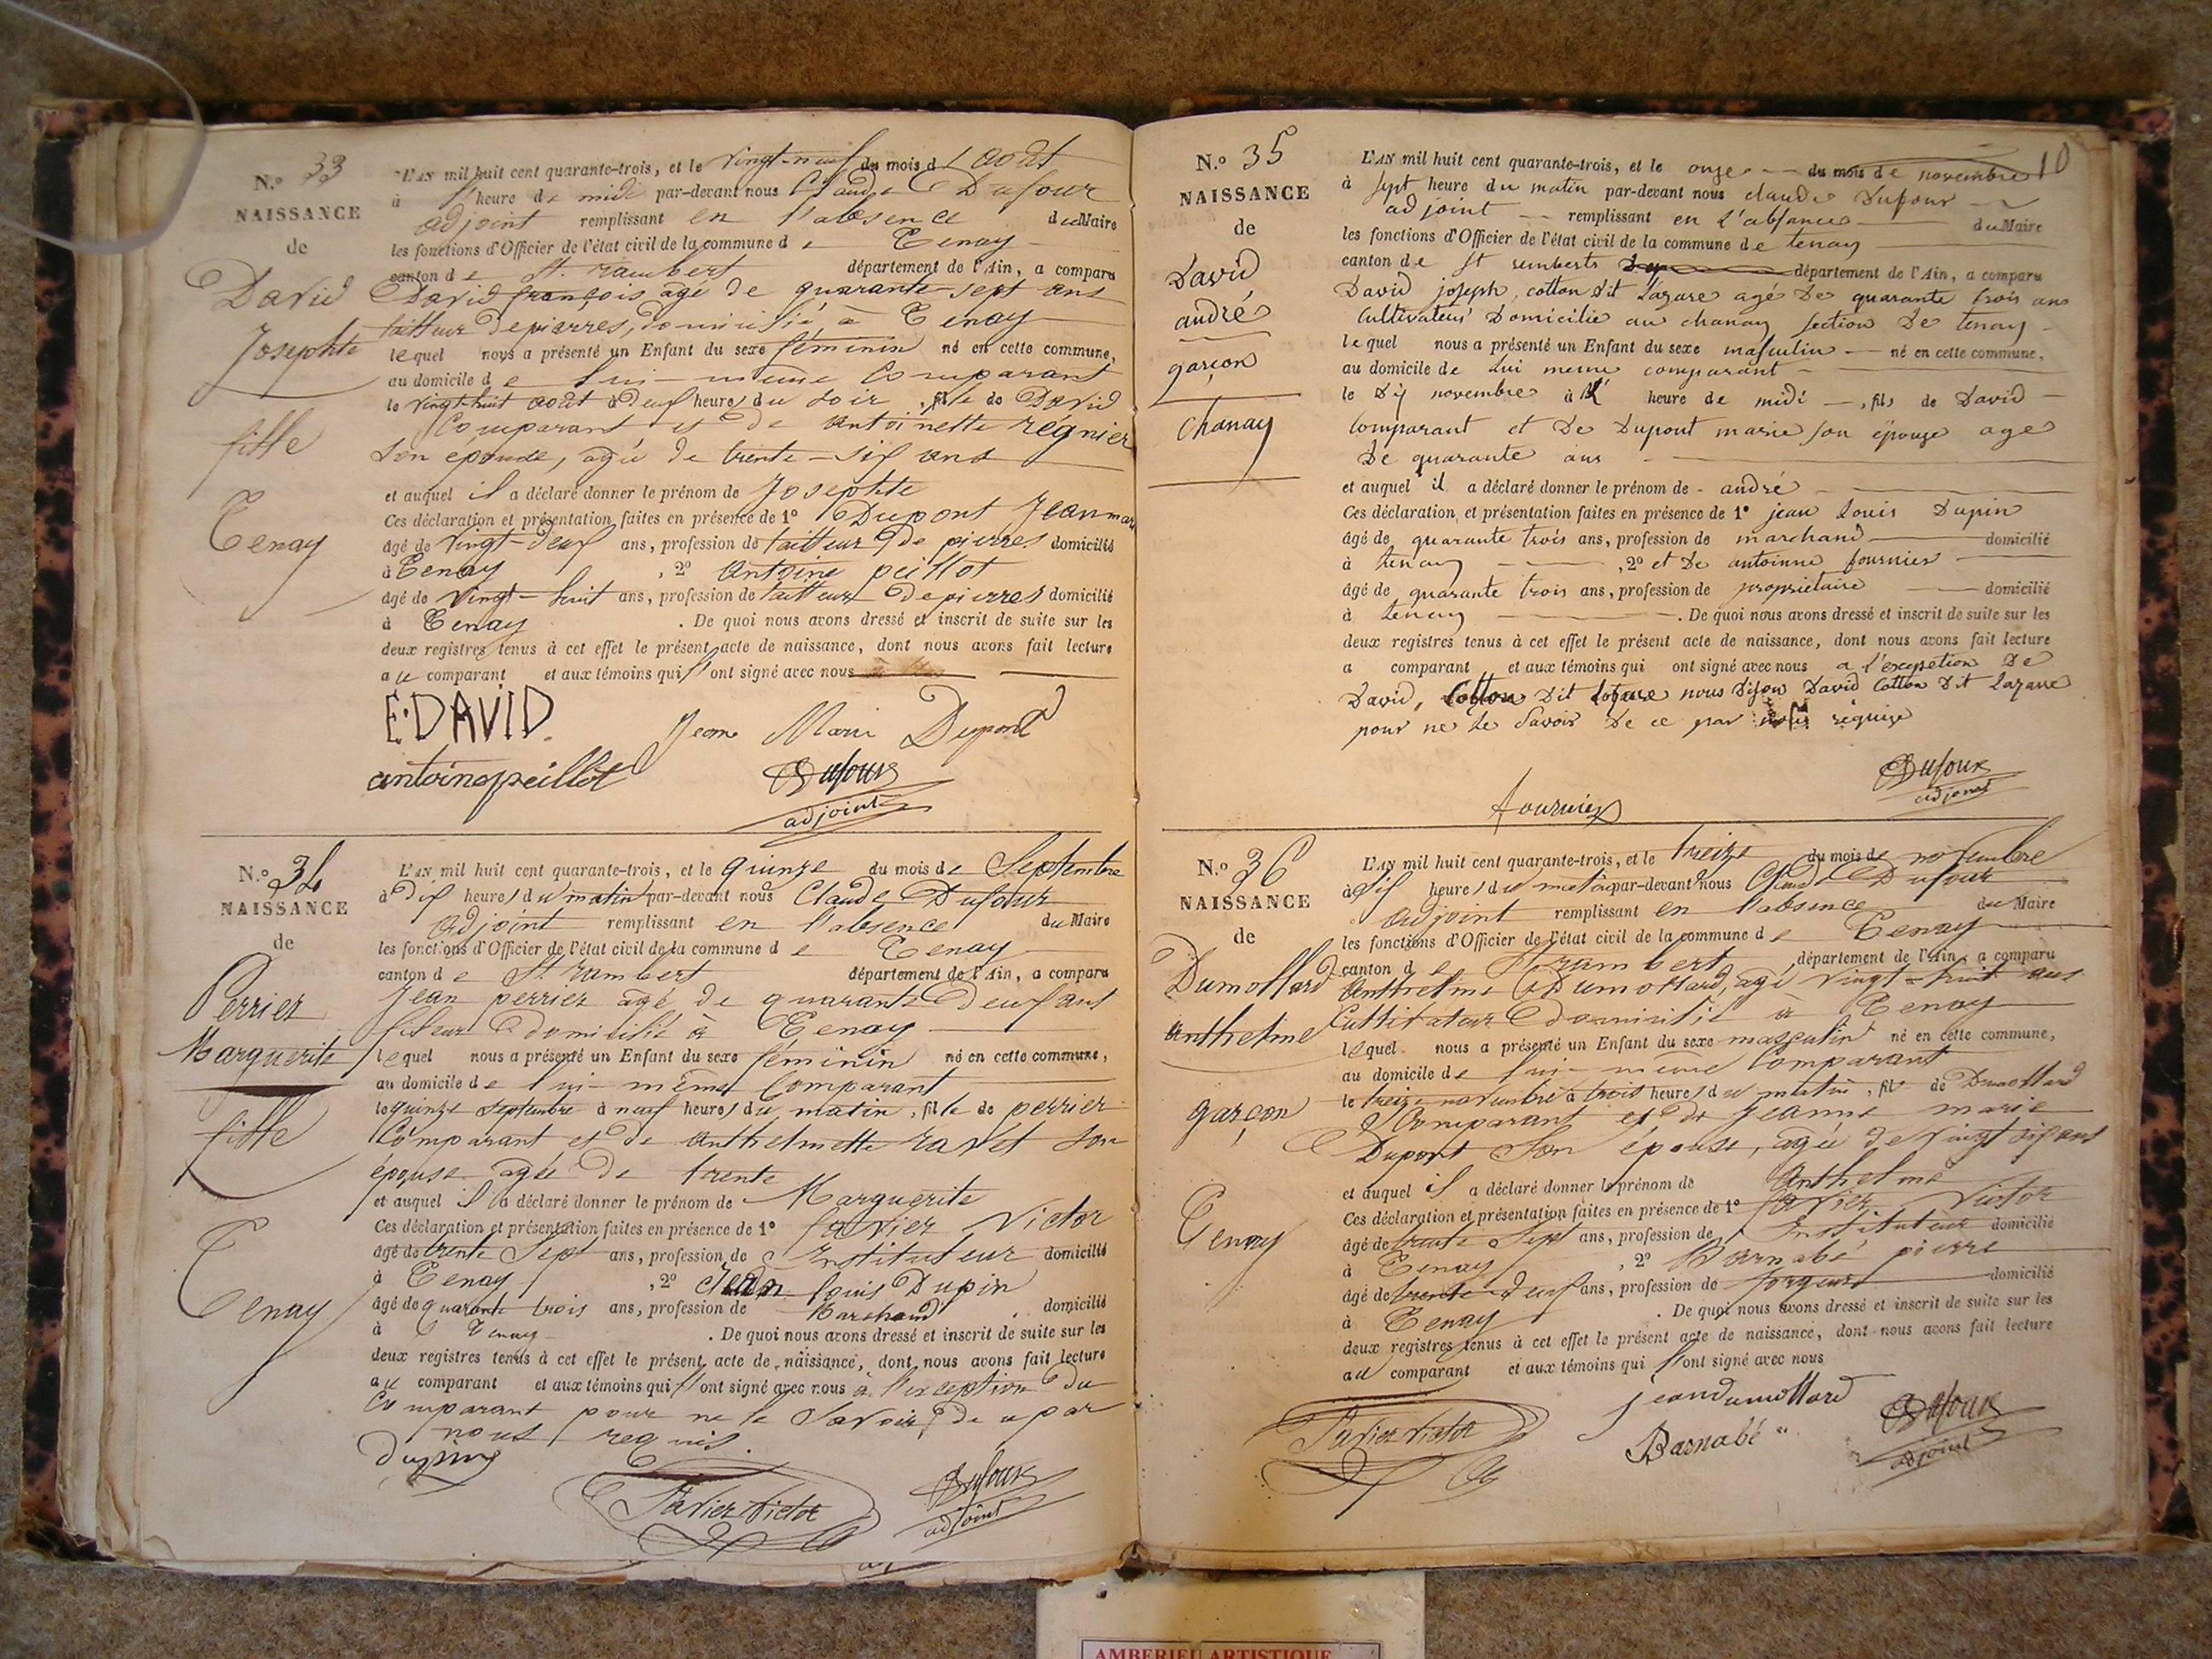 N.º 33
NAISSANCE
de
David
Josephte
fille
Tenay
L'AN mil huit cent quarante-trois, et le vingt-neuf du mois d'août
à l'heure de midi par-devant nous Claude Dufour
adjoint remplissant en l'absence du Maire
les fonctions d'Officier de l'état civil de la commune de Tenay
canton de St. rambert département de l'Ain, a comparu
David françois agé de quarante-sept ans
tailleur de pierres, domicilié à Tenay
lequel nous a présenté un Enfant du sexe féminin né en cette commune,
au domicile de lui-même Comparant
le vingt-huit août à deux heures du soir, fille de David
Comparant et de Antoinette régnier
son épouse, agée de trente-six ans
et auquel il a déclaré donner le prénom de Josephte
Ces déclaration et présentation faites en présence de 1º Dupont Jean marie
âgé de vingt-deux ans, profession de tailleur de pierres domicilié
à Tenay, 2º Antoine peillot
âgé de vingt-huit ans, profession de tailleur de pierres domicilié
à Tenay. De quoi nous avons dressé et inscrit de suite sur les
deux registres tenus à cet effet le présent acte de naissance, dont nous avons fait lecture
au comparant et aux témoins qui l'ont signé avec nous
E. DAVID. Jean Marie Dupont
antoine peillot Dufour
adjoint
N.º 34
NAISSANCE
de
Perrier
Marguerite
fille
Tenay
L'AN mil huit cent quarante-trois, et le quinze du mois de Septembre
à dix heures du matin par-devant nous Claude Dufour
adjoint remplissant en l'absence du Maire
les fonctions d'Officier de l'état civil de la commune de Tenay
canton de St. rambert département de l'Ain, a comparu
Jean perrier agé de quarante deux ans
fileur domicilié à Tenay
lequel nous a présenté un Enfant du sexe féminin né en cette commune,
au domicile de lui-même Comparant
le quinze septembre à neuf heures du matin, fille de perrier
Comparant et de anthelmette ravet son
épouse agée de trente
et auquel il a déclaré donner le prénom de Marguerite
Ces déclaration et présentation faites en présence de 1º favier Victor
âgé de trente Sept ans, profession de Instituteur domicilié
à Tenay, 2º Jean louis Dupin
âgé de quarante trois ans, profession de Marchand domicilié
à Tenay. De quoi nous avons dressé et inscrit de suite sur les
deux registres tenus à cet effet le présent acte de naissance, dont nous avons fait lecture
au comparant et aux témoins qui l'ont signé avec nous à l'exception du
Comparant pour ne le Savoir, de ce par
nous requis.
dupin
favier victor Dufour
adjoint
10
N.º 35
NAISSANCE
de
David
andré
garçon
Chanay
L'AN mil huit cent quarante-trois, et le onze du mois de novembre
à sept heure du matin par-devant nous claude Dufour
adjoint remplissant en l'absance du Maire
les fonctions d'Officier de l'état civil de la commune de tenay
canton de St remberts département de l'Ain, a comparu
David joseph, cotton dit lazare agé De quarante trois ans
Cultivateur Domicilie au chanay section De tenay
lequel nous a présenté un Enfant du sexe masculin né en cette commune,
au domicile de lui meme comparant
le Dix novembre à heure de midi, fils de David
Comparant et De Dupont marie son épouze age
De quarante ans
et auquel il a déclaré donner le prénom de andré
Ces déclaration et présentation faites en présence de 1º jean louis Dupin
âgé de quarante trois ans, profession de marchand domicilié
à tenay, 2º et De antoinne fournier
âgé de quarante trois ans, profession de propriétaire domicilié
à tenay. De quoi nous avons dressé et inscrit de suite sur les
deux registres tenus à cet effet le présent acte de naissance, dont nous avons fait lecture
a comparant et aux témoins qui ont signé avec nous a l'exception De
David, Cotton Dit lazare nous Dison David Cotton Dit lazare
pour ne le savoir De ce par nous requize
Dufour
adjoint
fournier
N.º 36
NAISSANCE
de
Dumollard
anthelme
garçon
Tenay
L'AN mil huit cent quarante-trois, et le treize du mois de novembre
à dix heures du matin par-devant nous Claude Dufour
adjoint remplissant en l'absence du Maire
les fonctions d'Officier de l'état civil de la commune de Tenay
canton de St rambert département de l'Ain, a comparu
Anthelme Dumollard, agé vingt-huit ans
Cultivateur domicilié à Tenay
lequel nous a présenté un Enfant du sexe masculin né en cette commune,
au domicile de lui-même Comparant
le treize novembre à trois heures du matin, fils de Dumollard
Comparant et de Jeanne marie
Dupont Son épouse, agée de vingt six ans
et auquel il a déclaré donner le prénom de Anthelme
Ces déclaration et présentation faites en présence de 1º favier Victor
âgé de trente Sept ans, profession de Instituteur domicilié
à Tenay, 2º Barnabé pierre
âgé de trente-deux ans, profession de forgeur domicilié
à Tenay. De quoi nous avons dressé et inscrit de suite sur les
deux registres tenus à cet effet le présent acte de naissance, dont nous avons fait lecture
au comparant et aux témoins qui l'ont signé avec nous
jean dumollard
favier victor Barnabé Dufour
adjoint
AMBERIEU ARTISTIQUE